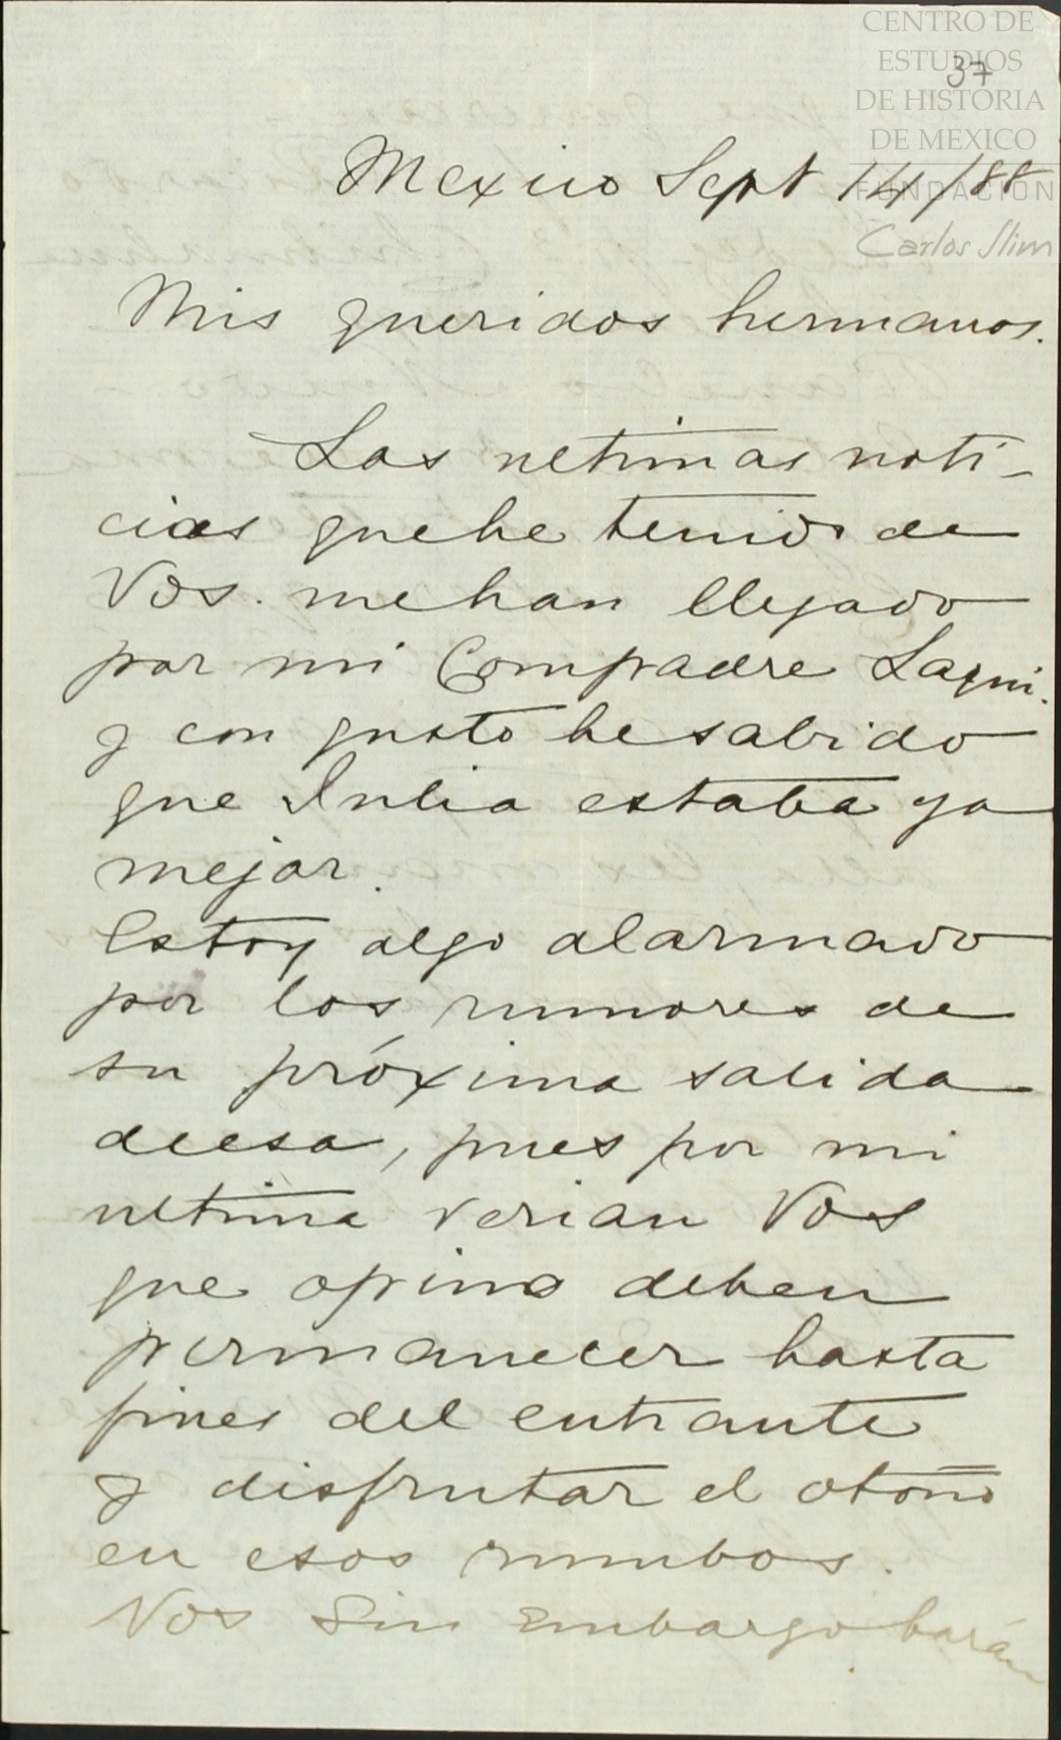 CENTRO DE
ESTUDIOS
DE HISTORIA
DE MEXICO
FUNDACIÓN
Carlos Slim
37
Mexico Sept 14/88
Mis queridos hermanos.
Las ultimas noti-
cias que he tenido de
Vds. me han llegado
por mi Compadre Laqui.
y con gusto he sabido
que Julia estaba ya
mejor.
Estoy algo alarmado
por los rumores de
su próxima salida
de esa, pues por mi
ultima verian Vds
que opino deben
permanecer hasta
fines del entrante
y disfrutar el otoño
en esos rumbos.
Vds sin embargo harán